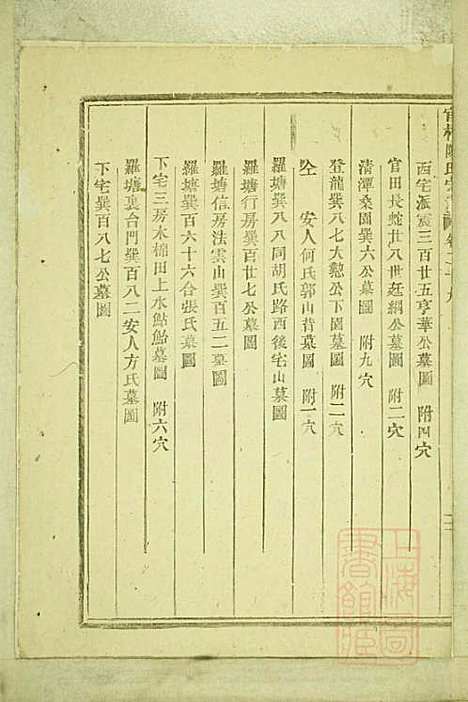 西宅派震三百廿五亨華公墓圖 附四穴
官田長蛇廿八世廷綱公墓圖 附二穴
清潭桑園巽六公墓圖 附九穴
登龍巽八七大憝公下園墓圖 附二穴
仝 安人何氏郭山背墓圖 附一穴
羅塘巽八八同胡氏路西後宅山墓圖
羅塘行房巽百廿七公墓圖
羅塘信房法雲山巽百五二墓圖
羅塘巽百六十六合張氏墓圖
下宅三房木棉田上水鮎鮐墓圖 附六穴
羅塘裏台門巽百八二安人方氏墓圖
下宅巽百八七公墓圖
上海圖書館藏